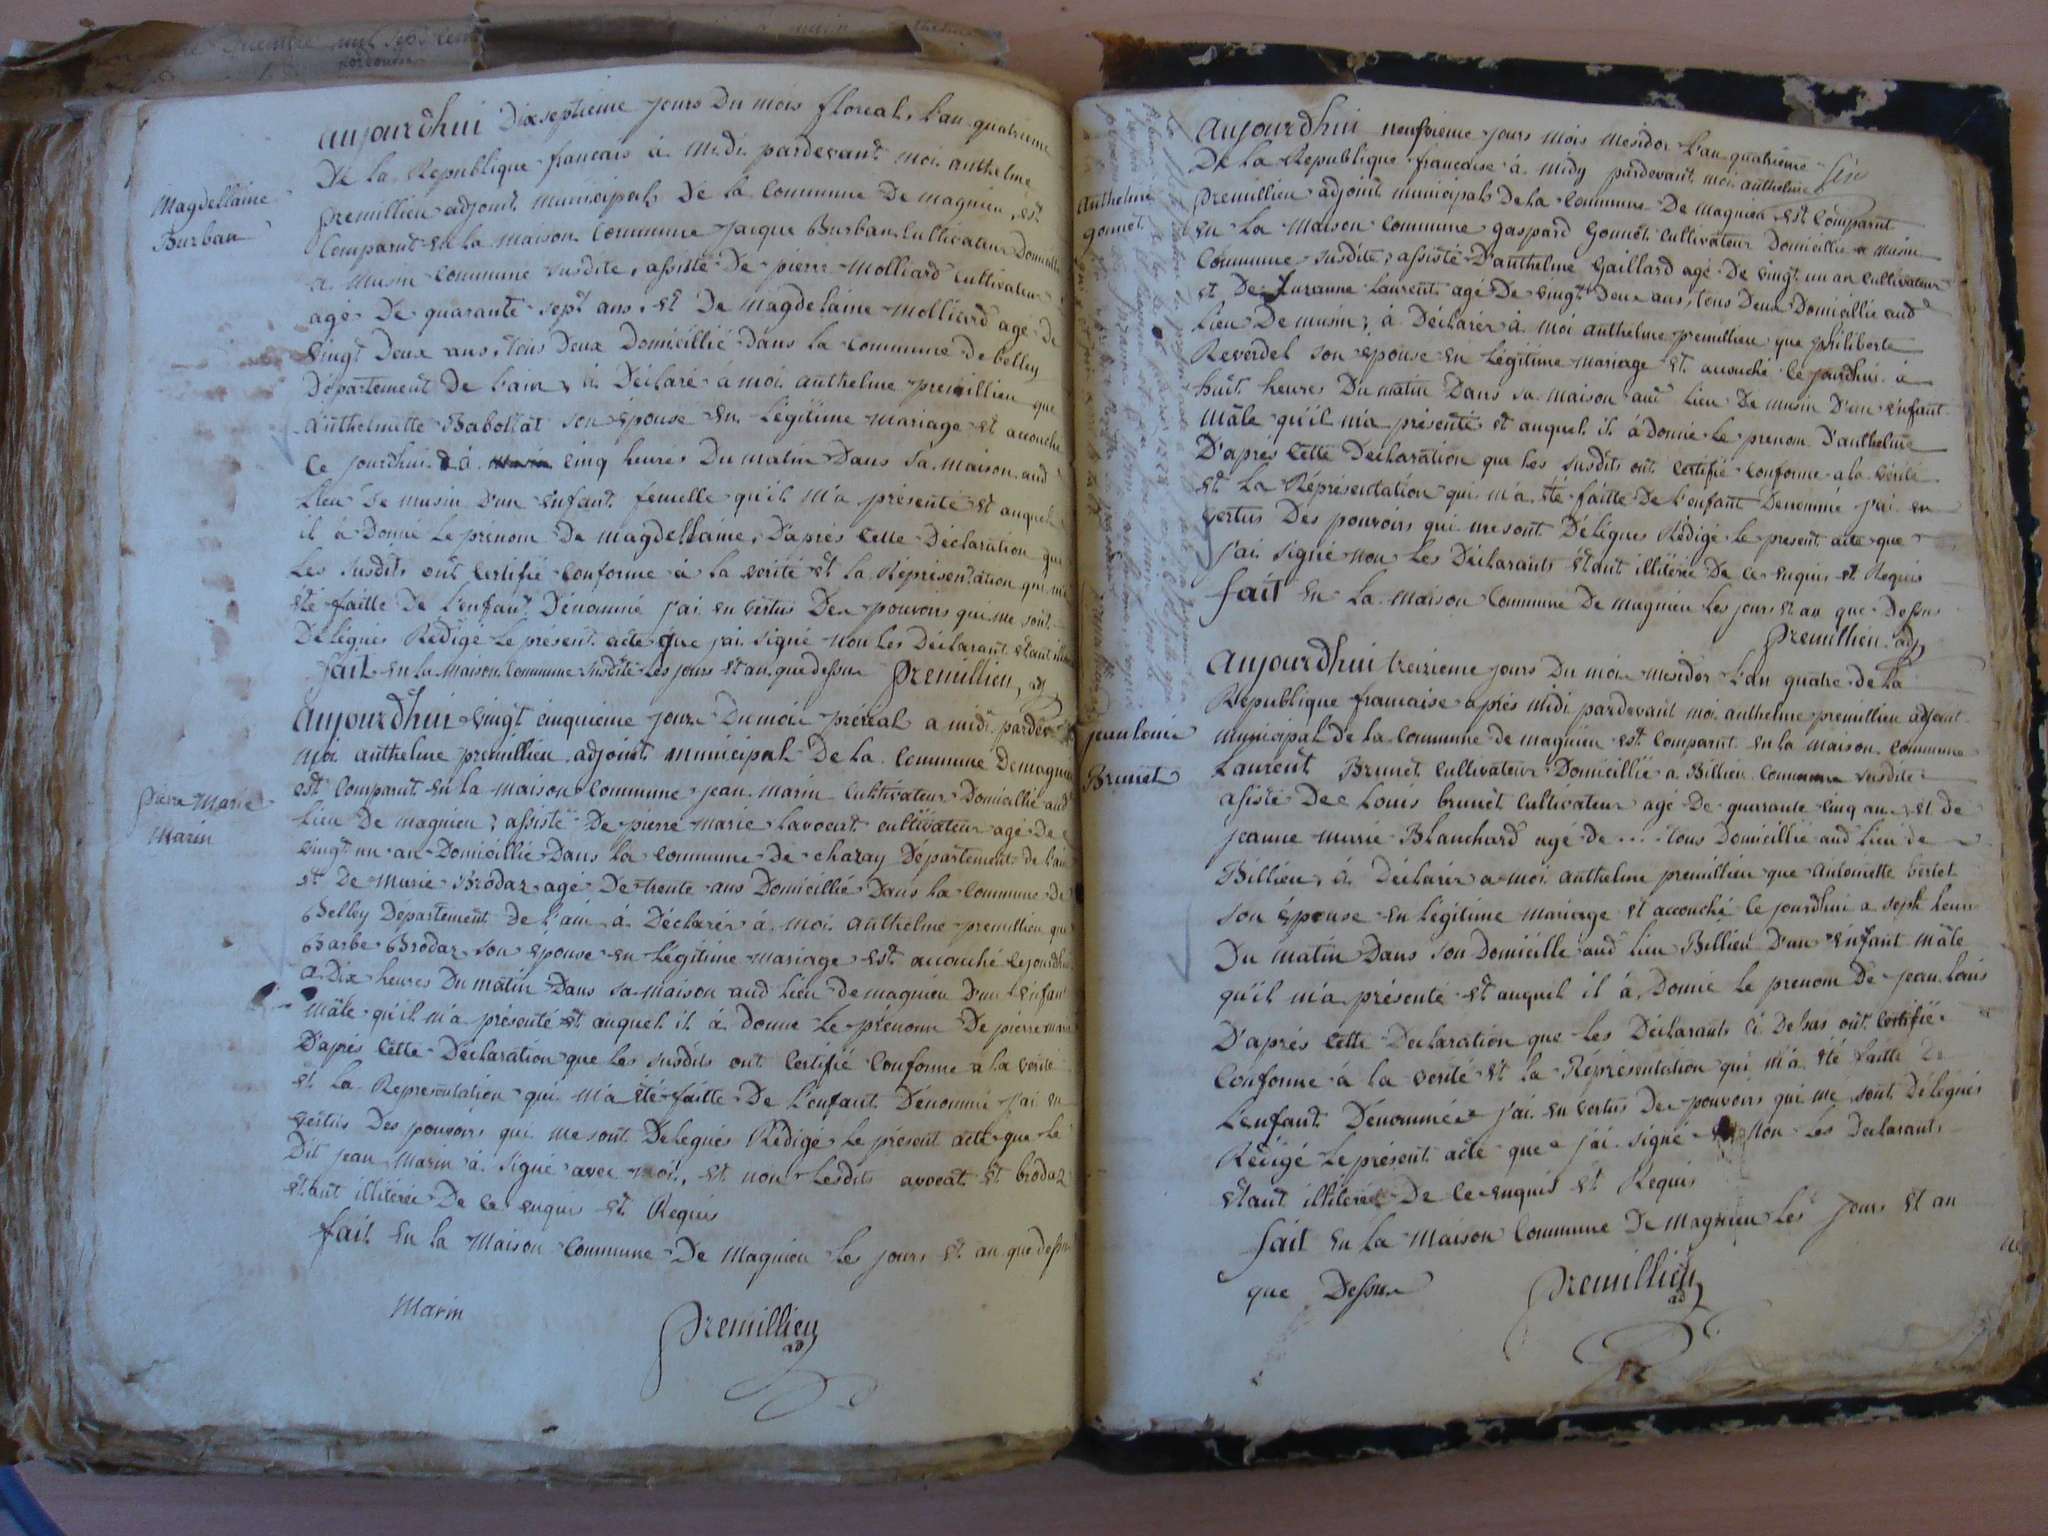 Magdellaine
Burban
aujourdhui Dixseptieme jours Du mois floreal, l'an quatrieme
De la Republique francais à midi pardevant moi anthelme
premillieu adjoint municipal De la Commune De magnieu, est
Comparut en la maison Commune jacque Burban Cultivateur Domicillié
a musin Commune susdite, assisté De pierre Molliard cultivateur
agé De quarante sept ans, et De magdelaine molliard agé De
vingt Deux ans, tous Deux Domicillié dans la Commune de belley
Département De l'ain, à Déclaré a moi anthelme premillieu que
anthelmette Babollat son épouse en Légitime mariage et accouché
Ce jourdhui à cinq heures Du matin Dans sa maison aud
Lieu De musin D'un enfant femelle qu'il m'a présenté et auquel
il à Donné Le prénom De magdellaine, D'après Cette Déclaration que
Les susdits ont Certifié conforme à la verité et la Représentation qui m'a
été faitte De l'enfant Dénommé j'ai en vertus Des pouvoirs qui me sont
Délegués Rédigé Le présent acte que j'ai signé non les Déclarant étant
fait en la Maison Commune susdite Les jours et an que dessus premillieu, adj
Pierre Marie
Marin
aujourdhui vingt cinquieme jours Du mois préreal a midi pardevt
moi anthelme premillieu adjoint municipal De la Commune De magnieu
est Comparut en la maison Commune jean marin Cultivateur Domicillié aud
Lieu De magnieu, assisté De pierre marie Lavocat cultivateur agé De
vingt un an Domicillié Dans la Commune de chazay Département de l'ain
et De Marie Brodaz agé De trente ans Domicillié Dans la Commune De
Belley Département De l'ain, à Déclarér à moi anthelme premillieu que
Barbe Brodaz son epouse en Légitime mariage est accouché cejourdhui
a Dix heures Du matin Dans sa maison aud Lieu de magnieu D'un Enfant
mâle qu'il m'a présenté et auquel il à donné Le prénom De pierre marie
D'après Cette Déclaration que Les susdits ont Certifié Conforme a la verité
et la Représentation qui m'a été faitte De L'enfant Dénommé j'ai en
vertus Des pouvoirs qui me sont Delegués Redigé Le présent acte que Le
Dit jean Marin à signé avec moi, et non Lesdits avocat et brodaz
étant illitérée De ce enquis et Requis
fait en la Maison Commune De magnieu Les jours et an que dessus
Marin
premillieu
ad
anthelme
gonnet
aujourdhui neufvieme jours mois mesidor L'an quatrieme
De la Republique francaise à midy pardevant moi anthelme
premillieu adjoint municipal De la Commune De magnieu est Comparut
en La Maison Commune gaspard Gonnet cultivateur Domicillié a musin
Commune susdite, assisté D'anthelme Gaillard agé De vingt un an Cultivateur
et De Suzanne Laurent agé De vingt Deux ans, tous Deux Domicillié aud
Lieu De musin, à Déclarér à moi anthelme premillieu que philiberte
Reverdel son epouse en Légitime mariage et accouché ce jourdhui à
huit heures Du matin Dans sa maison aud Lieu De musin D'un enfant
mâle qu'il m'a présenté et auquel il à donné Le prenom D'anthelme
D'après Cette Déclaration que Les susdits ont Certifié conforme a la vérité
et La Représentation qui m'a été faitte De L'enfant Dénommé j'ai en
vertus Des pouvoirs qui me sont Délegués Rédigé Le présent acte que
j'ai signé non Les Déclarants étant illitérée De ce enquis et Requis
fait en La Maison Commune De magnieu Les jours et an que Dessus
premillieu adj
jean Louis
Brunet
aujourdhui treizieme jours Du mois mesidor L'an quatre de la
Republique francaise après midi pardevant moi anthelme premillieu adjoint
municipal De la Commune de magnieu est Comparut en la maison Commune
Laurent Brunet Cultivateur Domicillié a Billieu Commune susdite
asisté De Louis brunet Cultivateur agé De quarante cinq an, et de
jeanne marie Blanchard agé de .... tous Domicillié aud Lieu de
Billieu, à Déclarér a moi anthelme premillieu que antoinette bertet
son épouse en légitime mariage et accouché ce jourdhui a sept heures
Du matin Dans son Domicille aud lieu Billieu D'un enfant mâle
qu'il m'a présenté et auquel il à Donné Le prenom De jean Louis
D'après Cette Declaration que Les Déclarants ci Debas ont certifié
Conforme à la verité et la Représentation qui m'a été faitte De
L'enfant Dénommée j'ai en vertus Des pouvoirs qui me sont Délegués
Rédigé Le présent acte que j'ai signé non Les Declarants
étant illiterée De ce enquis et Requis
fait en la Maison Commune De magnieu Les jours et an
que Dessus
premillieu
ad